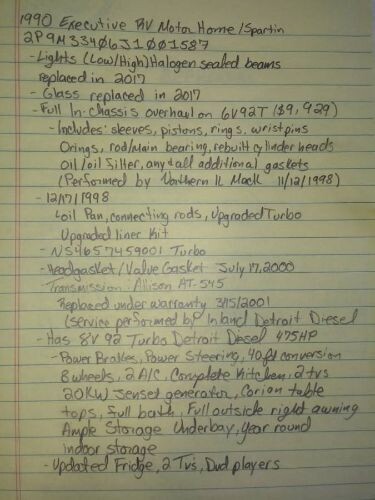 1990 Executive RV Motor Home/Spartin
2P9M33406J1001587
- Lights (Low/High) Halogen sealed beams
replaced in 2017
- Glass replaced in 2017
- Full In-chassis overhaul on 6V92T ($9,929)
- Includes: sleeves, pistons, rings, wristpins
Orings, rod/main bearing, rebuilt cylinder heads
Oil/oil filter, any & all additional gaskets
(Performed by Northern IL Mack 11/12/1998)
- 12/17/1998
Oil Pan, connecting rods, Upgraded Turbo
Upgraded liner Kit
- NS4657459001 Turbo
- Headgasket/Valve Gasket July 17, 2000
- Transmission: Allison AT-545
Replaced under warranty 3/15/2001
(service performed by Inland Detroit Diesel
- Has 8V92 Turbo Detroit Desel 475HP
- Power Brakes, Power Steering, 40ft conversion
8 wheels, 2 A/C, Complete Kitchen, 2 tvs
20KW Jenset generator, Corian table
tops, full bath, Full outside right awning
Ample Storage Underbay, year round
indoor storage
- Updated Fridge, 2 Tv's, Dvd players